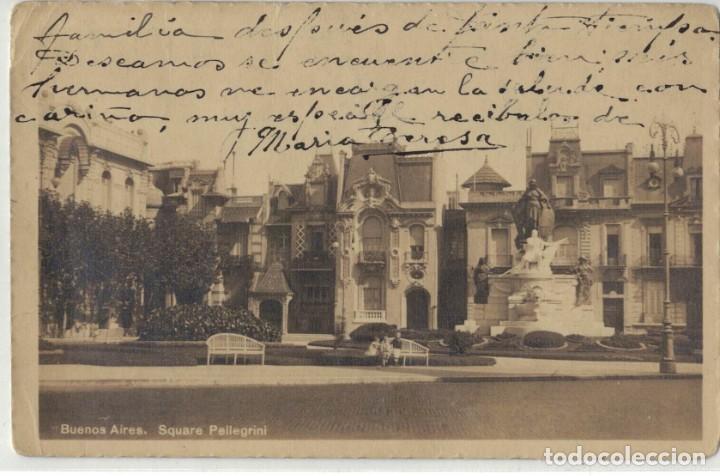 familia después de tanto tiempo.
Deseamos se encuent e bien, mis
hermanos me encargan la salude con
cariño, muy especial recíbalos de
Maria Teresa
Buenos Aires. Square Pellegrini
todocoleccion.net